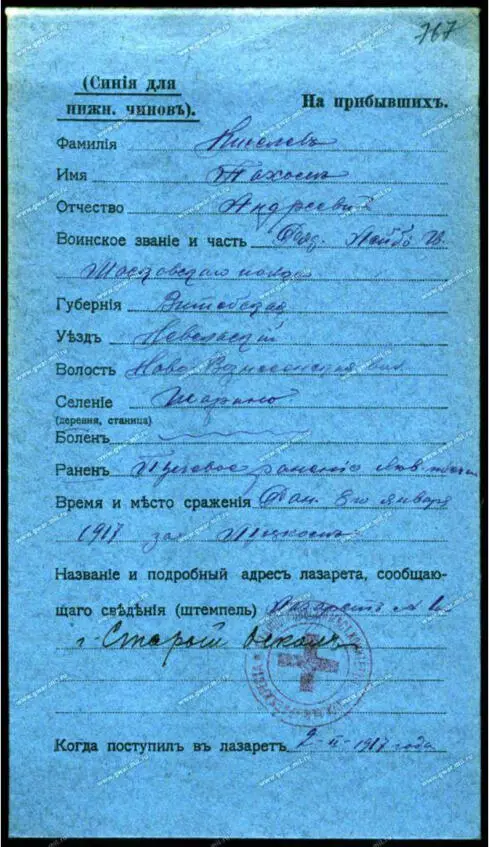 767
(Синія для
нижн. чиновъ).
На прибывшихъ.
Фамилія Киселевъ
Имя Пахомъ
Отчество Андреевич
Воинское званіе и часть Ряд. Лейбъ Гв.
Московскаго полка
Губернія Витебская
Уѣздъ Невельскій
Волость Ново
Селеніе
(деревня, станица)
Боленъ
Раненъ Пулевое раненіе лѣв.
Время и мѣсто сраженія Ран. 8го января
1917 за Луцкомъ
Названіе и подробный адресъ лазарета, сообщаю-
щаго свѣдѣнія (штемпель) Лазаретъ №
г. Старый Осколъ
Когда поступилъ въ лазаретъ 2-II-1917 года
www.gwar.mil.ru